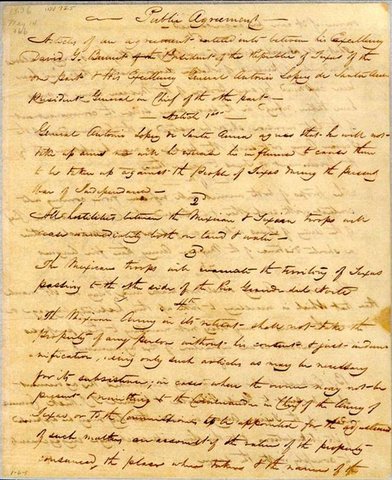 1836
May 14
Public Agreement
Articles of an agreement entered into between his Excellency
David G. Burnet of the President of the Republic of Texas of the
one part & His Excellency General Antonio Lopez de Santa Anna
President General in Chief of the other part —
Article 1st —
General Antonio Lopez de Santa Anna agrees that he will not
take up arms nor will he his influence to cause them
to be taken up against the People of Texas during the present
War of Independence —
2
All hostilities between the Mexican & Texian troops will
cease immediately both on land & water —
3
The Mexican troops will evacuate the territory of Texas
passing to the other side of the Rio Grande del Norte
4th
The Mexican Army in its retreat shall not take the
property of any person without his consent & just indem-
nification, using only such articles as may be necessary
for its subsistence, in cases where the owner may not be
present & remitting to the Commander in Chief of the Army of
Texas or to the Commissioners to be appointed for the adjustment
of such matters, an account of the value of the property
consumed, the place where taken & the name of the